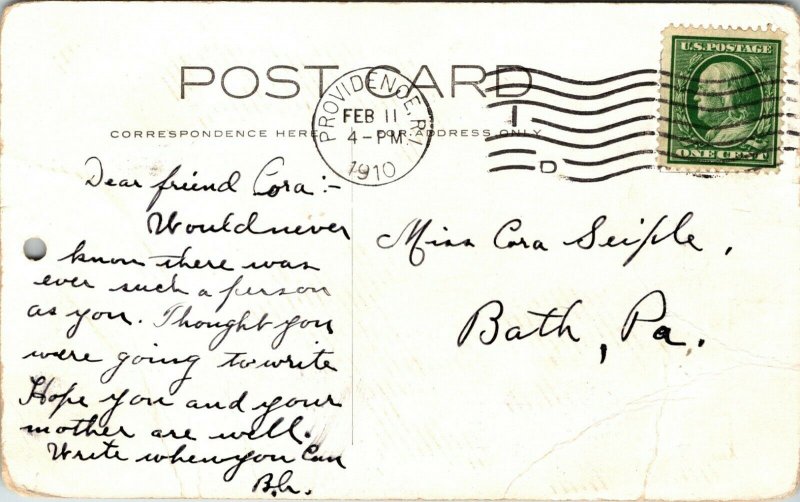 POST CARD
CORRESPONDENCE HERE
FOR ADDRESS ONLY
PROVIDENCE, R.I.
FEB 11
4-PM
1910
I
D
U.S. POSTAGE
ONE CENT
Dear friend Cora :-
Would never
know there was
ever such a person
as you. Thought you
were going to write
Hope you and your
mother are well.
Write when you Can
Miss Cora Seiple,
Bath, Pa.